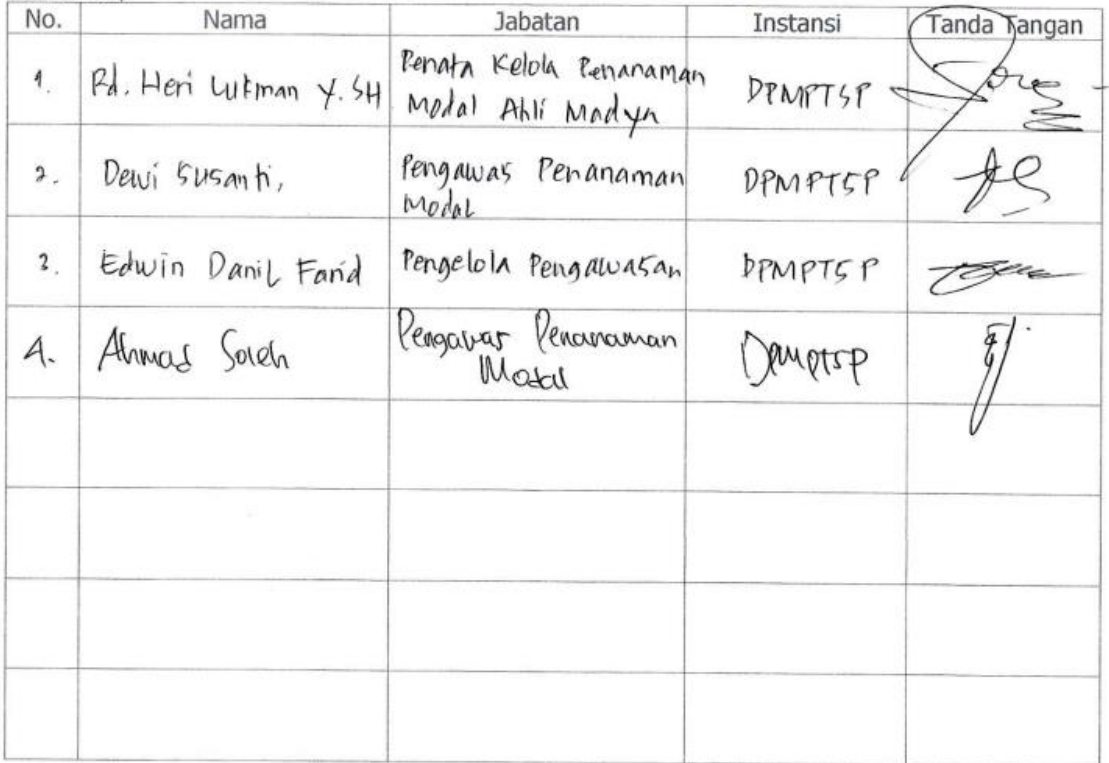 No. Nama Jabatan Instansi Tanda Tangan
1. Rd. Heri Lukman Y. SH Penata Kelola Penanaman DPMPTSP
Modal Ahli Madya
2. Dewi Susanti, Pengawas Penanaman DPMPTSP
Modal
3. Edwin Danil Farid Pengelola Pengawasan DPMPTSP
4. Ahmad Soleh Pengawas Penanaman DPMPTSP
Modal